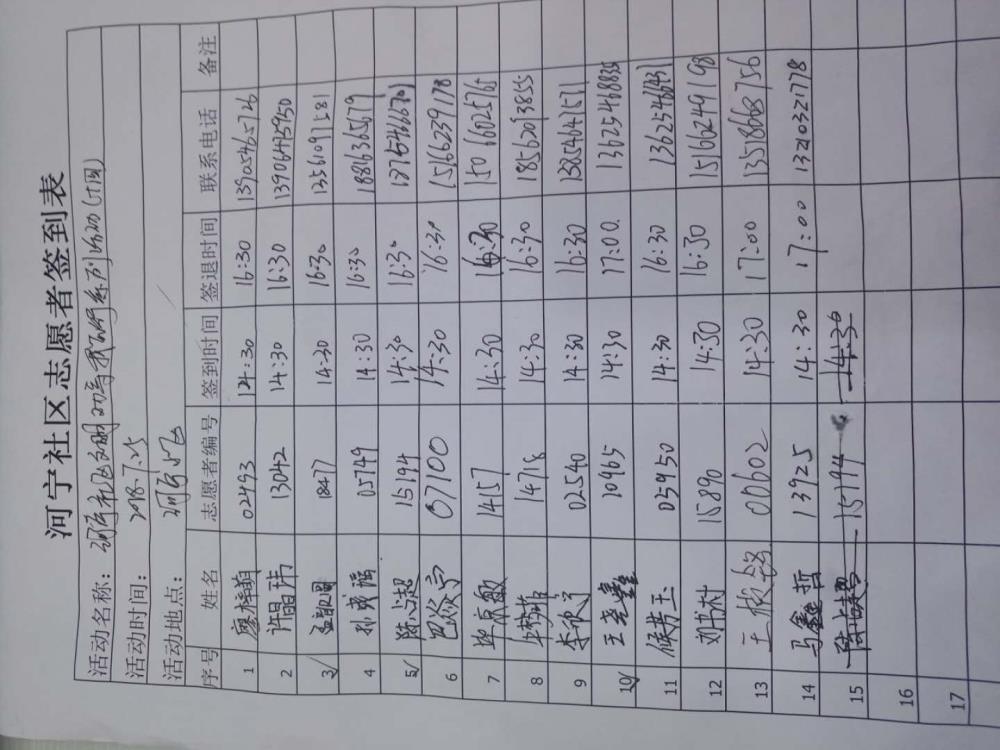 河宁社区志愿者签到表
活动名称：河宁社区文明
活动时间：2018.7.25
活动地点：河宁社区
序号 姓名 志愿者编号 签到时间 签退时间 联系电话 备注
1 02493 14:30 16:30 13905465726
2 许晶玮 13042 14:30 16:30 13906475950
3 18477 14:30 16:30 13561091581
4 05749 14:30 16:30 18816365679
5 陈心超 15194 14:30 16:30 13754666701
6 07100 14:30 16:30 15166239178
7 毕京敏 14157 14:30 16:30 15066025765
8 14718 14:30 16:30 18562093855
9 李欣宁 02540 14:30 16:30 13854641571
10 王奎鑫 10965 14:30 17:00
11 侯芳玉 05950 14:30 16:30 13625466431
12 刘书村 15890 14:30 16:30 15166249198
13 00602 14:30 17:00 13518668756
14 马鑫哲 13925 14:30 17:00 13210321778
15 15194 14:30
16
17